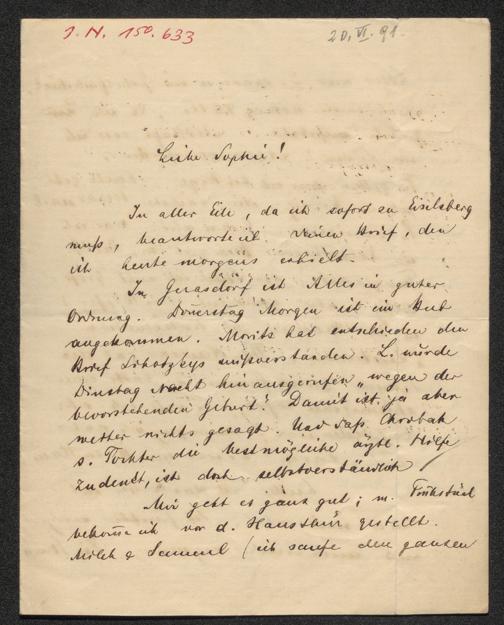 I. N. 150.633
20. VI. 91.
Liebe Sophie!
In aller Eile, da ich sofort zu Eiselsberg
muß, beantworte ich Deinen Brief, den
ich heute morgens erhielt.
In Gerasdorf ist Alles in guter
Ordnung. Donnerstag Morgen ist ein Bub
angekommen. Moritz hat entschieden den
Brief mißverstanden. L. wurde
Dienstag Nacht hinausgerufen „wegen der
bevorstehenden Geburt“. Damit ist ja aber
weiter nichts gesagt. Und daß Chrobak
s. Tochter die bestmögliche ärztl. Hilfe
zudenkt, ist doch selbstverständlich
Mir geht es ganz gut; m. Frühstück
bekomme ich vor d. Hausthür gestellt.
Milch & Semmel (ich saufe den ganzen